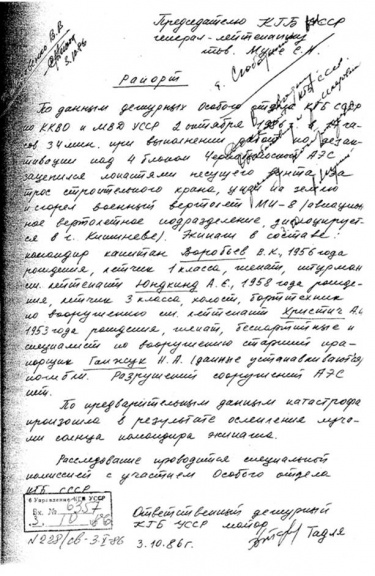 Председателю КГБ УССР
генерал-лейтенанту
тов. Мухе С.Н.
3.10.86
Рапорт
По данным дежурных Особого отдела КГБ СССР
по ККВО и МВД УССР 2 октября 1986 г. в
сов 34 мин. при выполнении работ по дезак-
тивации над 4 блоком Чернобыльской АЭС
зацепился лопастями несущего винта за
трос строительного крана, упал на землю
и сгорел военный вертолет МИ-8 (авиацион-
ное вертолетное подразделение, дислоцирует-
ся в г. Кишиневе). Экипаж в составе:
командир капитан Воробьев В.К., 1956 года
рождения, летчик 1 класса, женат, штурман
ст. лейтенант Юнгкинд А.Е., 1958 года рожде-
ния, летчик 3 класса, холост, борттехник
по вооружению ст. лейтенант Христич А.
1953 года рождения, женат, беспартийные и
специалист по вооружению старший пра-
порщик Ганжук Н.А. (данные устанавливаются)
погибли. Разрушений сооружений АЭС
нет.
По предварительным данным катастрофа
произошла в результате ослепления луча-
ми солнца командира экипажа.
Расследование проводится специальной
комиссией с участием Особого отдела
КГБ СССР.
6 Управление КГБ УССР
Вх. № 6357
3. 10 86
Ответственный дежурный
КГБ УССР майор
Тадля
3.10.86г.